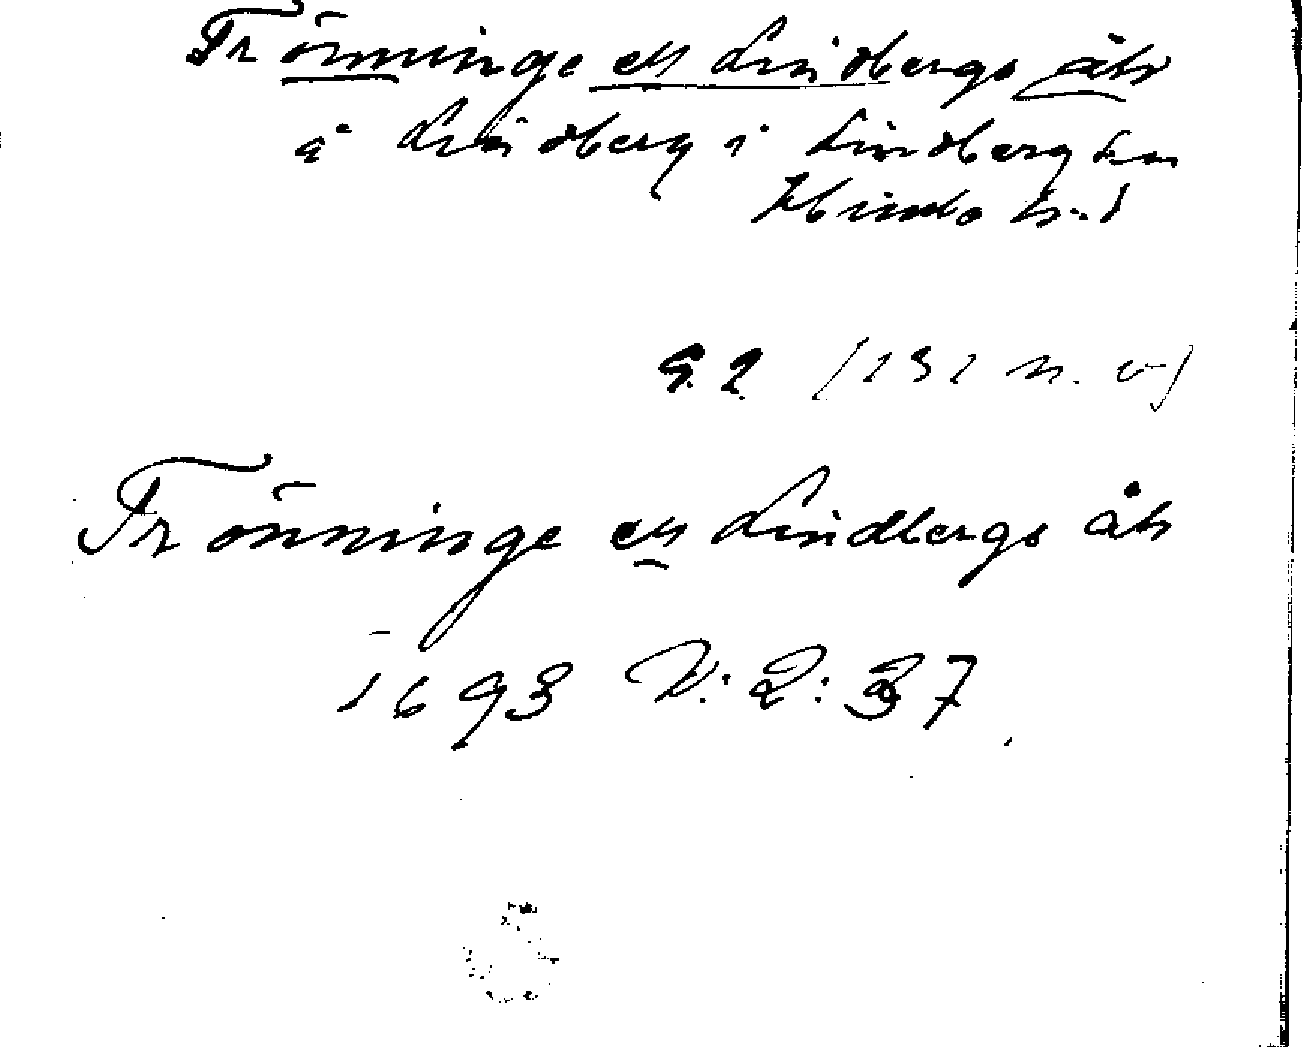 Trönninge ell Lindbergs åts
å Lindberg i Lindberg sn
Himle hd
S. 2 (131 n. v)
Trönninge ell Lindbergs åts
1693 V: 2: 37